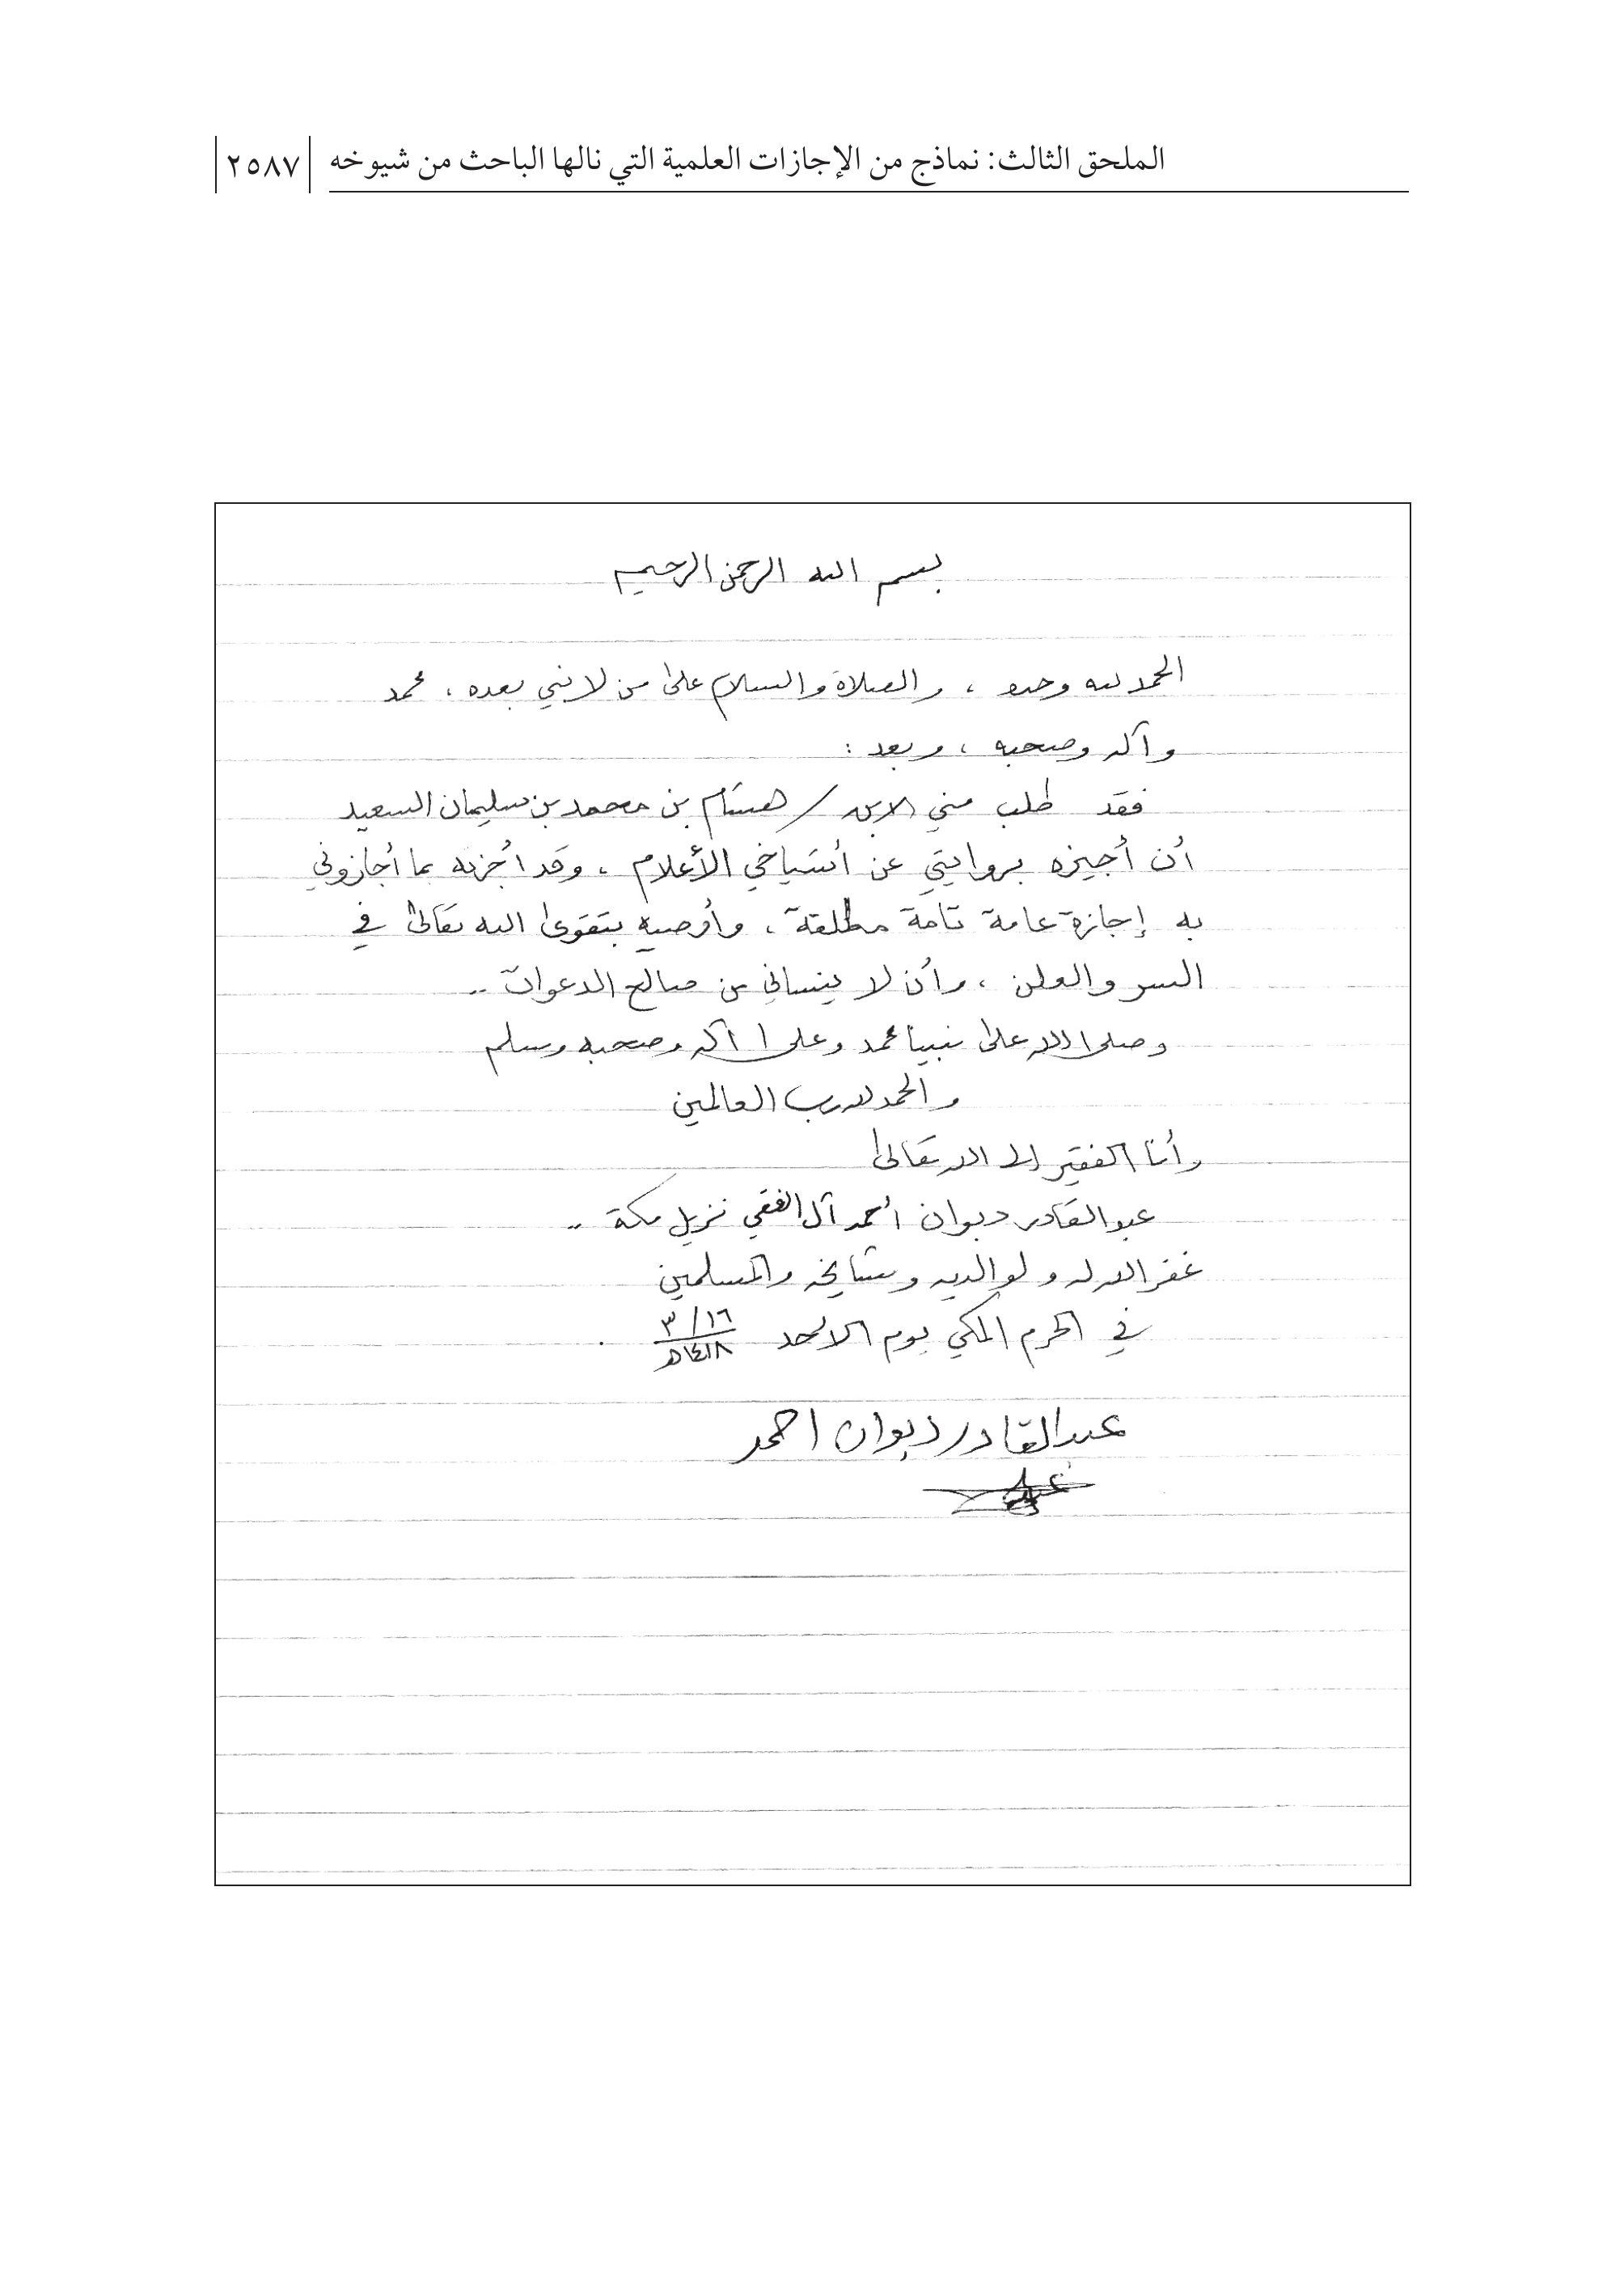 الملحق الثالث: نماذج من الإجازات العلمية التي نالها الباحث من شيوخه ٢٥٨٧
بسم الله الرحمن الرحيم
الحمد لله وحده ، والصلاة والسلام على من لا نبي بعده ، محمد
وآله وصحبه ، وبعد :
فقد طلب مني الابن / هشام بن محمد بن سليمان السعيد
أن أجيزه بروايتي عن أشياخي الأعلام ، وقد أجزته بما أجازوني
به إجازة عامة تامة مطلقة ، وأوصيه بتقوى الله تعالى في
السر والعلن ، وأن لا ينساني من صالح الدعوات ..
وصلى الله على نبينا محمد وعلى آله وصحبه وسلم
والحمد لله رب العالمين
وأنا الفقير إلى الله تعالى
عبد القادر ديوان أحمد آل الفقي نزيل مكة ..
غفر الله له ولوالديه ومشايخه والمسلمين
في الحرم المكي يوم الأحد ١٦/٣
١٤١٨هـ .
عبد القادر ديوان احمد